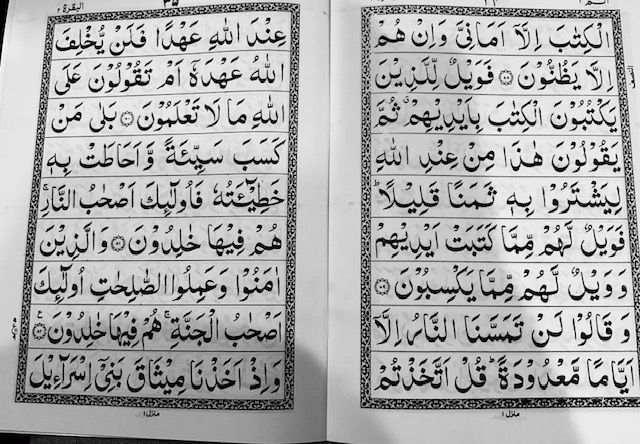 الٓمّٓ ١
الْكِتٰبَ اِلَّاۤ اَمَانِیَّ وَاِنْ هُمْ
اِلَّا یَظُنُّوْنَ ﴿۷۸﴾ فَوَیْلٌ لِّلَّذِیْنَ
یَكْتُبُوْنَ الْكِتٰبَ بِاَیْدِیْهِمْ ۗ ثُمَّ
یَقُوْلُوْنَ هٰذَا مِنْ عِنْدِ اللّٰهِ
لِیَشْتَرُوْا بِهٖ ثَمَنًا قَلِیْلًا ؕ
فَوَیْلٌ لَّهُمْ مِّمَّا كَتَبَتْ اَیْدِیْهِمْ
وَوَیْلٌ لَّهُمْ مِّمَّا یَكْسِبُوْنَ ﴿۷۹﴾
وَقَالُوْا لَنْ تَمَسَّنَا النَّارُ اِلَّاۤ
اَیَّامًا مَّعْدُوْدَةً ؕ قُلْ اَتَّخَذْتُمْ
منزل ١
البقرة ٢
٣٥
عِنْدَ اللّٰهِ عَهْدًا فَلَنْ یُّخْلِفَ
اللّٰهُ عَهْدَهٗۤ اَمْ تَقُوْلُوْنَ عَلَی
اللّٰهِ مَا لَا تَعْلَمُوْنَ ﴿۸۰﴾ بَلٰی مَنْ
كَسَبَ سَیِّئَةً وَّاَحَاطَتْ بِهٖ
خَطِیْٓئَتُهٗ فَاُولٰٓئِكَ اَصْحٰبُ النَّارِ ۚ
هُمْ فِیْهَا خٰلِدُوْنَ ﴿۸۱﴾ وَالَّذِیْنَ
اٰمَنُوْا وَعَمِلُوا الصّٰلِحٰتِ اُولٰٓئِكَ
اَصْحٰبُ الْجَنَّةِ ۚ هُمْ فِیْهَا خٰلِدُوْنَ ﴿۸۲﴾
وَاِذْ اَخَذْنَا مِیْثَاقَ بَنِیْۤ اِسْرَآءِیْلَ
منزل ١